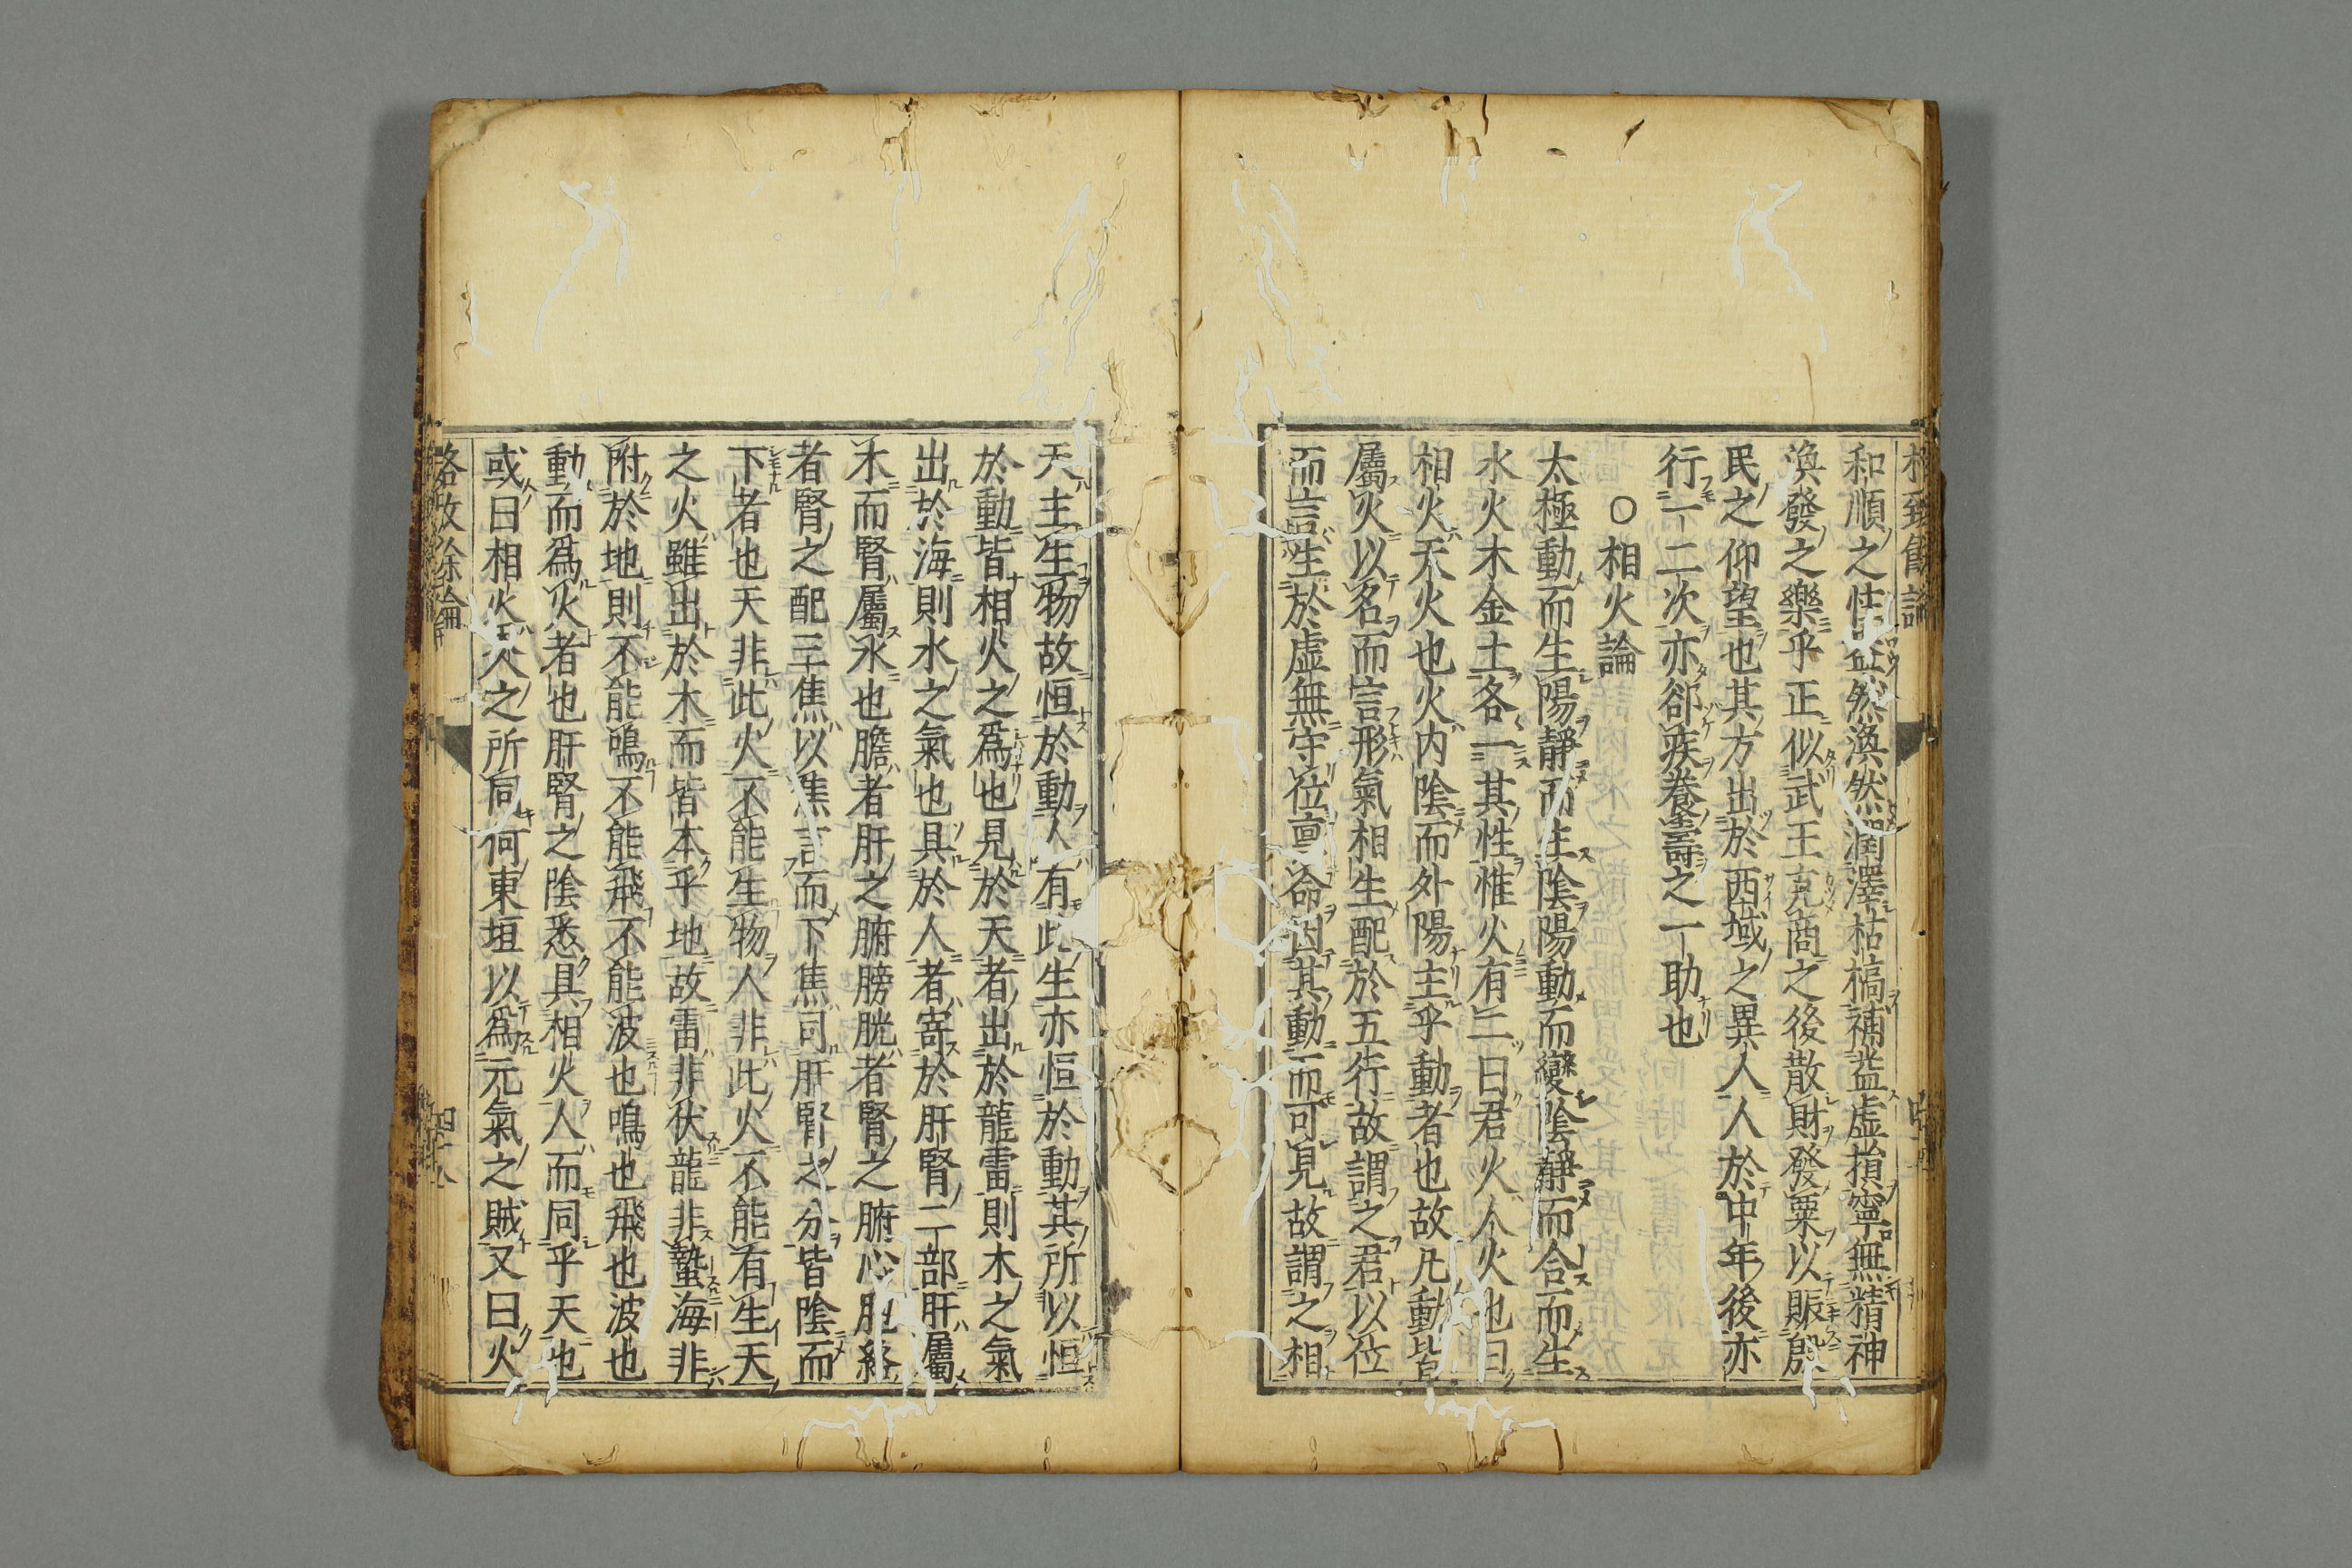 和順之性盎然渙然潤澤枯槁補益虛損寧無精神
渙發之樂乎正似武王克商之後散財發粟以賑殷
民之仰望也其方出於西域之異人人於中年後亦
行一二次亦郤疾養壽之一助也
〇相火論
太極動而生陽靜而生陰陽動而變陰靜而合而生
水火木金土各一其性惟火有二曰君火人火也曰
相火天火也火内陰而外陽主乎動者也故凡動皆
屬火以名而言形氣相生配於五行故謂之君以位
而言生於虛無守位禀命因其動而可見故謂之相
天主生物故恒於動人有此生亦恒於動其所以恒
於動皆相火之爲也見於天者出於龍雷則木之氣
出於海則水之氣也具於人者寄於肝腎二部肝屬
木而腎屬水也膽者肝之腑膀胱者腎之腑心胞絡
者腎之配三焦以焦言而下焦司肝腎之分皆陰而
下者也天非此火不能生物人非此火不能有生天
之火雖出於木而皆本乎地故雷非伏龍非蟄海非
附於地則不能鳴不能飛不能波也鳴也飛也波也
動而爲火者也肝腎之陰悉具相火人而同乎天也
或曰相火天人之所同何東垣以爲元氣之賊又曰火
格致餘論
四十八